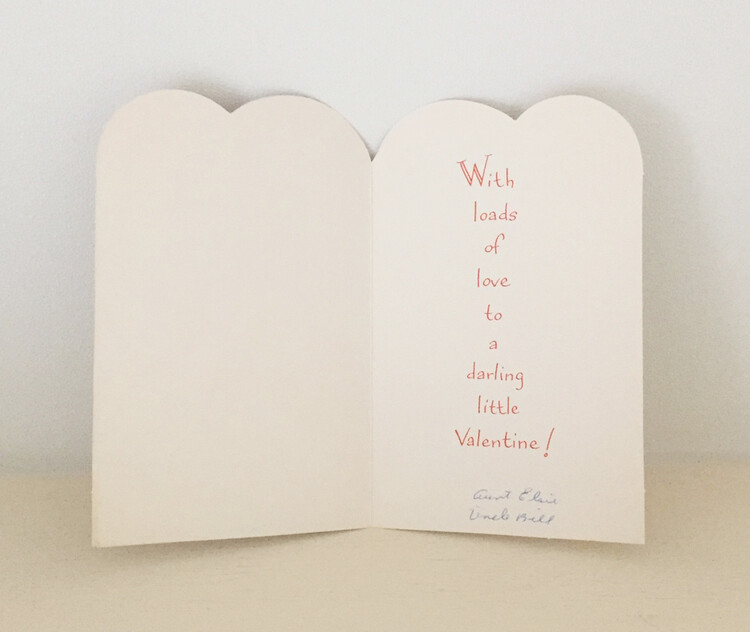 With
loads
of
love
to
a
darling
little
Valentine!
Aunt Elsie
Uncle Bill